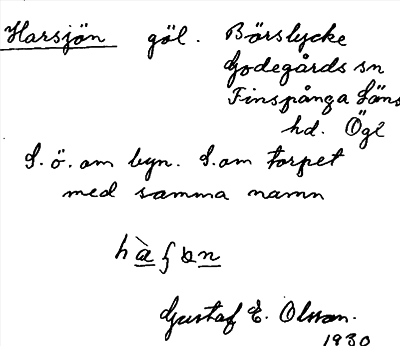 Harsjön göl. Börslycke
Godegårds sn
Finspånga Läns
hd. Ögl
S. ö. om byn. S. om torpet
med samma namn
Gustaf E. Olsson.
1930